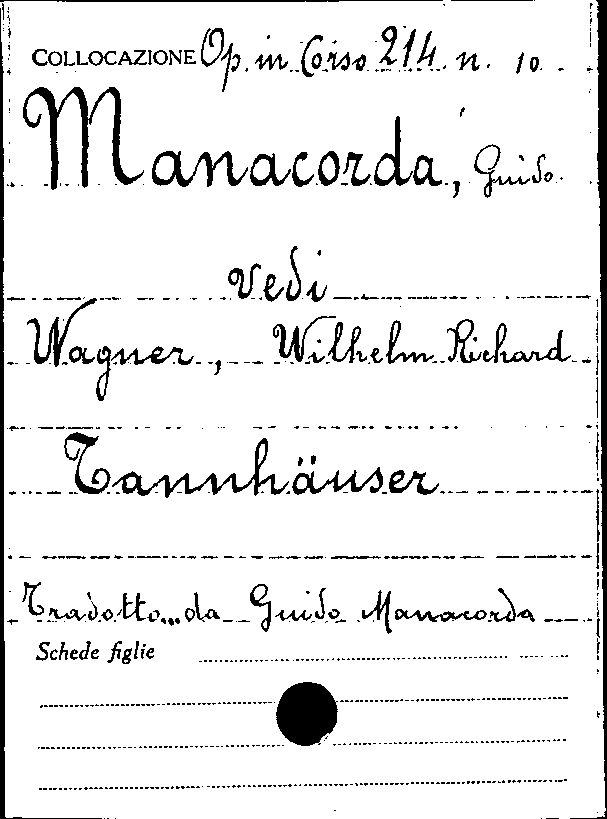 COLLOCAZIONE Op. in Corso 214. n. 10
Manacorda, Guido
vedi
Wagner, Wilhelm Richard
Tannhäuser
Tradotto...da Guido Manacorda
Schede figlie